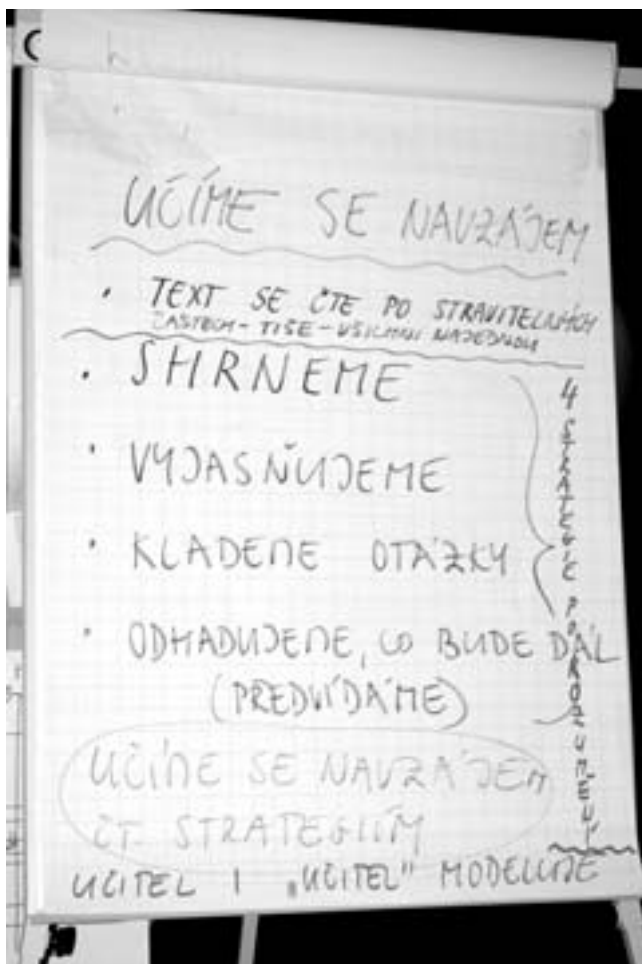 UČÍME SE NAVZÁJEM
• TEXT SE ČTE PO STRAVITELNÝCH
ČÁSTECH - TIŠE - VŠICHNI NAJEDNOU
• SHRNEME
• VYJASŇUJEME
• KLADEME OTÁZKY
• ODHADUJEME, CO BUDE DÁL
(PŘEDVÍDÁME)
4 STRATEGIE POROZUMĚNÍ
UČÍME SE NAVZÁJEM
ČT. STRATEGIÍM
UČITEL I „UČITEL" MODELUJE